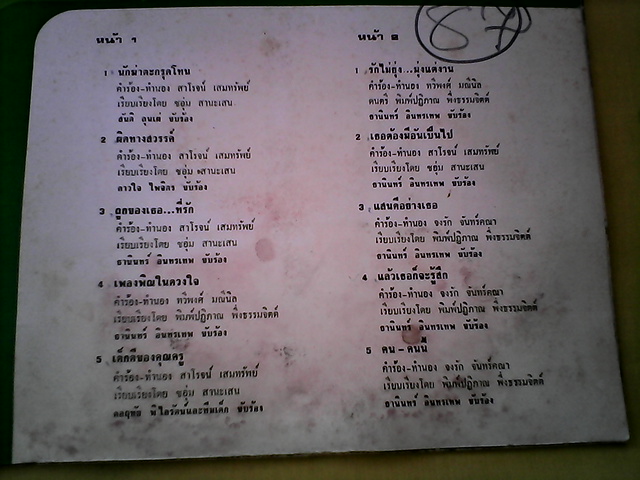 87
หน้า 1
1 นักฆ่าตะกรุดโทน
คำร้อง-ทำนอง สาโรจน์ เสมทรัพย์
เรียบเรียงโดย ชอุ่ม สานะเสน
สันติ ลุนเผ่ ขับร้อง
2 ผิดทางสวรรค์
คำร้อง-ทำนอง สาโรจน์ เสมทรัพย์
เรียบเรียงโดย ชอุ่ม สานะเสน
ดาวใจ ไพจิตร ขับร้อง
3 ลูกของเธอ...ที่รัก
คำร้อง-ทำนอง สาโรจน์ เสมทรัพย์
เรียบเรียงโดย ชอุ่ม สานะเสน
ธานินทร์ อินทรเทพ ขับร้อง
4 เพลงพิณในดวงใจ
คำร้อง-ทำนอง ทวีพงศ์ มณีนิล
เรียบเรียงโดย พิมพ์ปฏิภาณ พึ่งธรรมจิตต์
ธานินทร์ อินทรเทพ ขับร้อง
5 เด็กดีของคุณครู
คำร้อง-ทำนอง สาโรจน์ เสมทรัพย์
เรียบเรียงโดย ชอุ่ม สานะเสน
พิไลรัตน์และทีมเด็ก ขับร้อง
หน้า 2
1 รักไม่ยุ่ง...มุ่งแต่งาน
คำร้อง-ทำนอง ทวีพงศ์ มณีนิล
ดนตรี พิมพ์ปฏิภาณ พึ่งธรรมจิตต์
ธานินทร์ อินทรเทพ ขับร้อง
2 เธอต้องมีอันเป็นไป
คำร้อง-ทำนอง สาโรจน์ เสมทรัพย์
เรียบเรียงโดย ชอุ่ม สานะเสน
ธานินทร์ อินทรเทพ ขับร้อง
3 แสนดีอย่างเธอ
คำร้อง-ทำนอง จงรัก จันทร์คณา
เรียบเรียงโดย พิมพ์ปฏิภาณ พึ่งธรรมจิตต์
ธานินทร์ อินทรเทพ ขับร้อง
4 แล้วเธอก็จะรู้สึก
คำร้อง-ทำนอง จงรัก จันทร์คณา
เรียบเรียงโดย พิมพ์ปฏิภาณ พึ่งธรรมจิตต์
ธานินทร์ อินทรเทพ ขับร้อง
5 คน - คนนี้
คำร้อง-ทำนอง จงรัก จันทร์คณา
เรียบเรียงโดย พิมพ์ปฏิภาณ พึ่งธรรมจิตต์
ธานินทร์ อินทรเทพ ขับร้อง